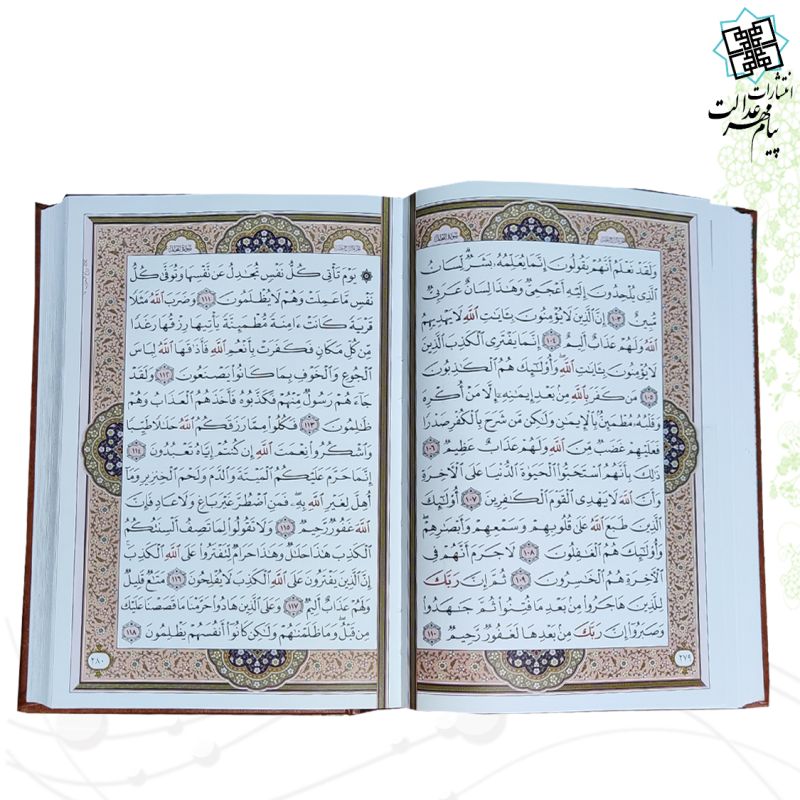 انتشارات
پیام مهر عدالت
سورة النحل
وَلَقَدْ نَعْلَمُ أَنَّهُمْ يَقُولُونَ إِنَّمَا يُعَلِّمُهُۥ بَشَرٌۗ لِّسَانُ
ٱلَّذِى يُلْحِدُونَ إِلَيْهِ أَعْجَمِىٌّ وَهَٰذَا لِسَانٌ عَرَبِىٌّ
مُّبِينٌ ١٠٣ إِنَّ ٱلَّذِينَ لَا يُؤْمِنُونَ بِـَٔايَٰتِ ٱللَّهِ لَا يَهْدِيهِمُ
ٱللَّهُ وَلَهُمْ عَذَابٌ أَلِيمٌ ١٠٤ إِنَّمَا يَفْتَرِى ٱلْكَذِبَ ٱلَّذِينَ
لَا يُؤْمِنُونَ بِـَٔايَٰتِ ٱللَّهِۖ وَأُو۟لَٰٓئِكَ هُمُ ٱلْكَٰذِبُونَ
١٠٥ مَن كَفَرَ بِٱللَّهِ مِنۢ بَعْدِ إِيمَٰنِهِۦٓ إِلَّا مَنْ أُكْرِهَ
وَقَلْبُهُۥ مُطْمَئِنٌّۢ بِٱلْإِيمَٰنِ وَلَٰكِن مَّن شَرَحَ بِٱلْكُفْرِ صَدْرًا
فَعَلَيْهِمْ غَضَبٌ مِّنَ ٱللَّهِ وَلَهُمْ عَذَابٌ عَظِيمٌ ١٠٦
ذَٰلِكَ بِأَنَّهُمُ ٱسْتَحَبُّوا۟ ٱلْحَيَوٰةَ ٱلدُّنْيَا عَلَى ٱلْءَاخِرَةِ
وَأَنَّ ٱللَّهَ لَا يَهْدِى ٱلْقَوْمَ ٱلْكَٰفِرِينَ ١٠٧ أُو۟لَٰٓئِكَ
ٱلَّذِينَ طَبَعَ ٱللَّهُ عَلَىٰ قُلُوبِهِمْ وَسَمْعِهِمْ وَأَبْصَٰرِهِمْۖ
وَأُو۟لَٰٓئِكَ هُمُ ٱلْغَٰفِلُونَ ١٠٨ لَا جَرَمَ أَنَّهُمْ فِى
ٱلْءَاخِرَةِ هُمُ ٱلْخَٰسِرُونَ ١٠٩ ثُمَّ إِنَّ رَبَّكَ
لِلَّذِينَ هَاجَرُوا۟ مِنۢ بَعْدِ مَا فُتِنُوا۟ ثُمَّ جَٰهَدُوا۟
وَصَبَرُوٓا۟ إِنَّ رَبَّكَ مِنۢ بَعْدِهَا لَغَفُورٌ رَّحِيمٌ ١١٠
٢٧٩
سورة النحل
يَوْمَ تَأْتِى كُلُّ نَفْسٍ تُجَٰدِلُ عَن نَّفْسِهَا وَتُوَفَّىٰ كُلُّ
نَفْسٍ مَّا عَمِلَتْ وَهُمْ لَا يُظْلَمُونَ ١١١ وَضَرَبَ ٱللَّهُ مَثَلًا
قَرْيَةً كَانَتْ ءَامِنَةً مُّطْمَئِنَّةً يَأْتِيهَا رِزْقُهَا رَغَدًا
مِّن كُلِّ مَكَانٍ فَكَفَرَتْ بِأَنْعُمِ ٱللَّهِ فَأَذَٰقَهَا ٱللَّهُ لِبَاسَ
ٱلْجُوعِ وَٱلْخَوْفِ بِمَا كَانُوا۟ يَصْنَعُونَ ١١٢ وَلَقَدْ
جَآءَهُمْ رَسُولٌ مِّنْهُمْ فَكَذَّبُوهُ فَأَخَذَهُمُ ٱلْعَذَابُ وَهُمْ
ظَٰلِمُونَ ١١٣ فَكُلُوا۟ مِمَّا رَزَقَكُمُ ٱللَّهُ حَلَٰلًا طَيِّبًا
وَٱشْكُرُوا۟ نِعْمَتَ ٱللَّهِ إِن كُنتُمْ إِيَّاهُ تَعْبُدُونَ ١١٤
إِنَّمَا حَرَّمَ عَلَيْكُمُ ٱلْمَيْتَةَ وَٱلدَّمَ وَلَحْمَ ٱلْخِنزِيرِ وَمَآ
أُهِلَّ لِغَيْرِ ٱللَّهِ بِهِۦۖ فَمَنِ ٱضْطُرَّ غَيْرَ بَاغٍ وَلَا عَادٍ فَإِنَّ
ٱللَّهَ غَفُورٌ رَّحِيمٌ ١١٥ وَلَا تَقُولُوا۟ لِمَا تَصِفُ أَلْسِنَتُكُمُ
ٱلْكَذِبَ هَٰذَا حَلَٰلٌ وَهَٰذَا حَرَامٌ لِّتَفْتَرُوا۟ عَلَى ٱللَّهِ ٱلْكَذِبَۚ
إِنَّ ٱلَّذِينَ يَفْتَرُونَ عَلَى ٱللَّهِ ٱلْكَذِبَ لَا يُفْلِحُونَ ١١٦ مَتَٰعٌ قَلِيلٌ
وَلَهُمْ عَذَابٌ أَلِيمٌ ١١٧ وَعَلَى ٱلَّذِينَ هَادُوا۟ حَرَّمْنَا مَا قَصَصْنَا عَلَيْكَ
مِن قَبْلُۖ وَمَا ظَلَمْنَٰهُمْ وَلَٰكِن كَانُوٓا۟ أَنفُسَهُمْ يَظْلِمُونَ ١١٨
٢٨٠